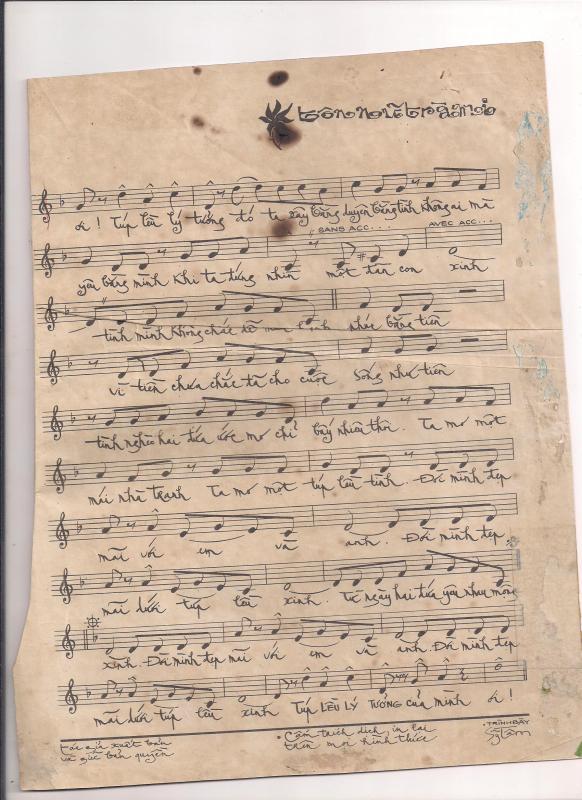 tôn nữ trà mi
ơi! Túp lều lý tưởng đó ta xây bằng duyên bằng tình không ai mà
SANS ACC... AVEC ACC...
yêu bằng mình khi ta đứng nhìn một đàn con xinh
tình mình không chắc đã nhác bằng tiên
vì tiền chưa chắc đã cho cuộc sống như tiên
tình nghèo hai đứa ước mơ chỉ bấy nhiêu thôi. Ta mơ một
mái nhà tranh Ta mơ một túp lều tình. Đời mình đẹp
mãi với em và anh. Đời mình đẹp
mãi dưới túp lều xinh. Từ ngày hai đứa yêu nhau mộng
xinh. Đời mình đẹp mãi với em và anh. Đời mình đẹp
mãi dưới túp lều xinh TÚP LỀU LÝ TƯỞNG của mình ơi!
tác giả xuất bản
và giữ bản quyền
• Cấm trích dịch, in lại
trên mọi hình thức
. TRÌNH BÀY
Sỹ Lâm